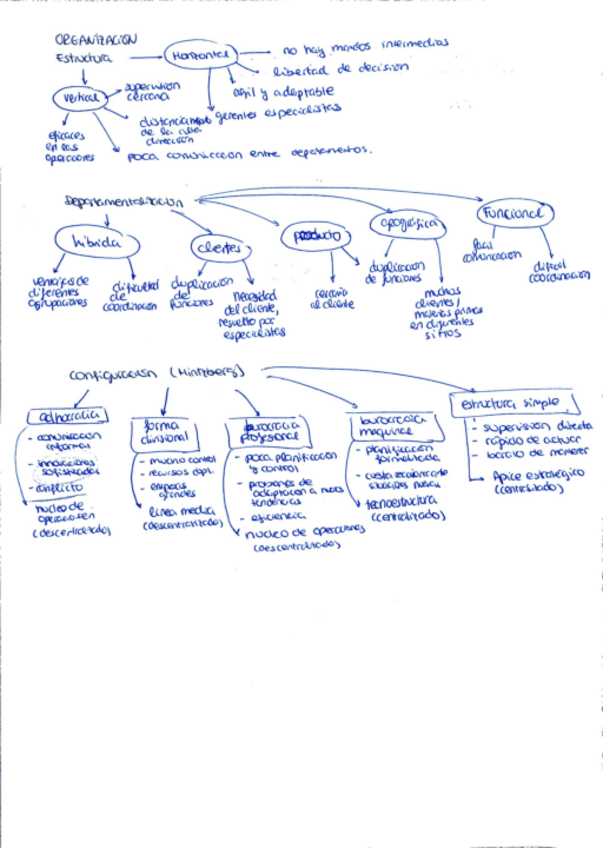 ORGANIZACIÓN
Estructura
Horizontal
no hay mandos intermedios
libertad de decisión
agil y adaptable
gerentes especialistas
Vertical
supervision
cercana
distanciamiento
de la alta
dirección
eficaces
en las
operaciones
poca comunicacion entre departamentos.
Departamentalización
hibrida
clientes
producto
geográfica
Funcional
ventajas de
diferentes
agrupaciones
dificultad
de
coordinación
duplicación
de
funciones
necesidad
del cliente,
resuelto por
especialistas
cercano
al cliente
duplicación
de funciones
muchos
clientes/
materias primas
en diferentes
sitios
facil
comunicación
dificil
coordinación
Configuración (Mintzberg)
adhocracia
- comunicacion
informal
- innovaciones
sofisticadas
- conflicto
nucleo de
(descentralizado)
forma
divisional
- mucho control
- recursos dept.
- empresas
grandes
linea media
(descentralizado)
burocracia
profesional
- poca planificación
y control
- problemas de
adaptación a nuevas
tendencias
- eficiencia
nucleo de operaciones
(descentralizado)
burocracia
maquinal
- planificación
formalizada
situaciones nuevas
tecnoestructura
(centralizado)
estructura simple
- supervisión directa
- rápido de actuar
- barato de mantener
Apice estratégico
(centralizado)